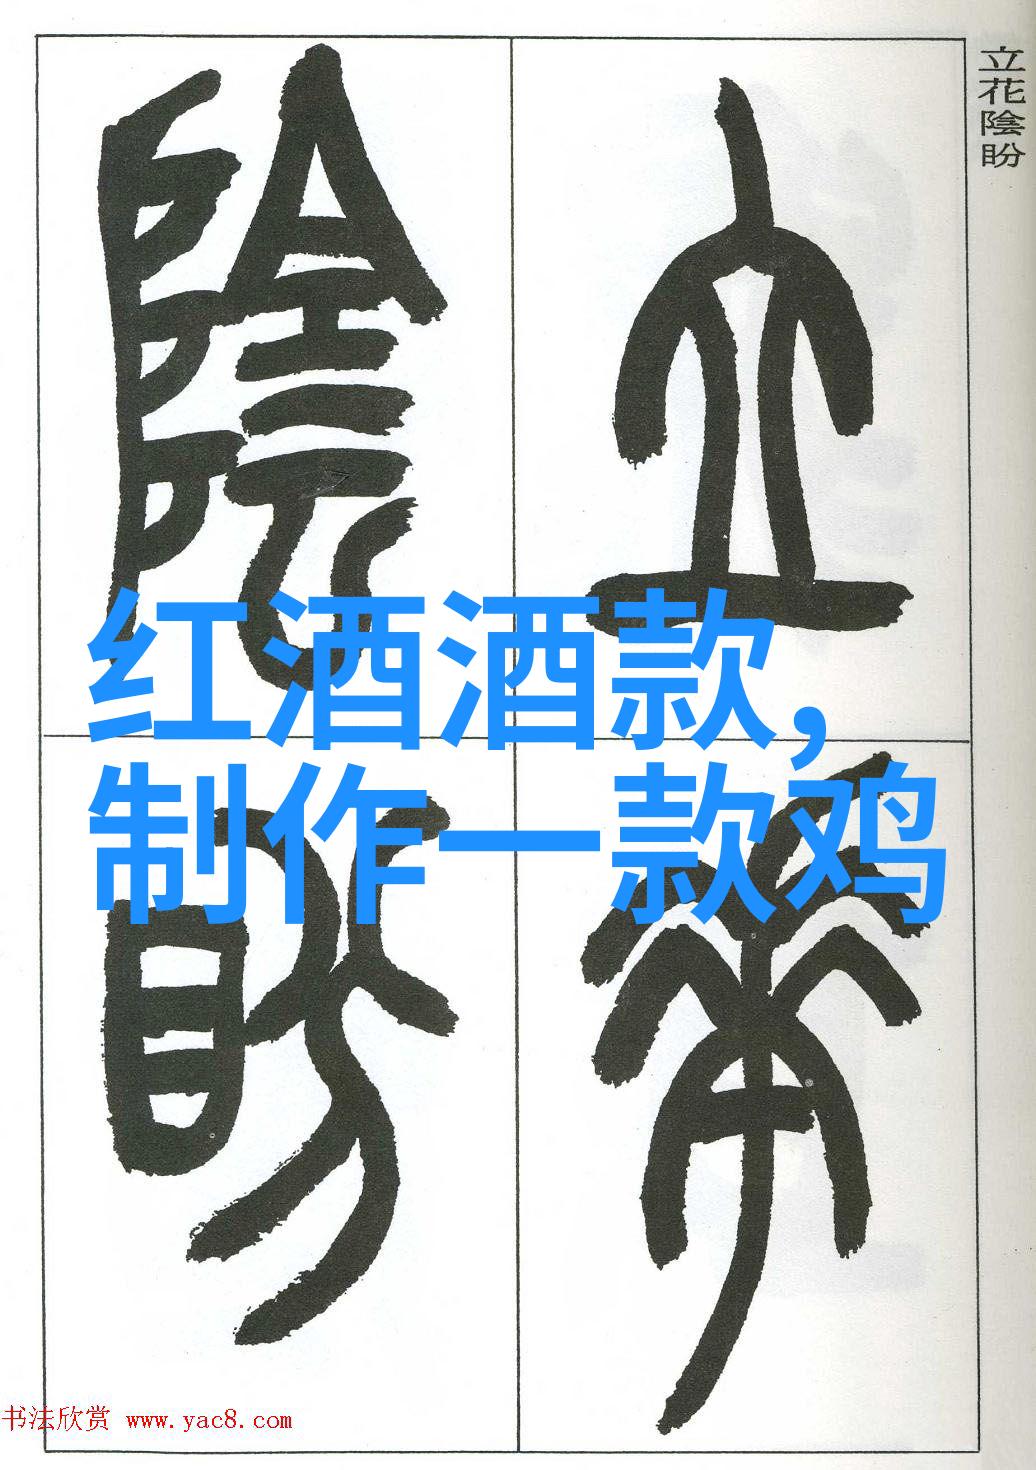 立花陰盼
立花
陰盼
红酒酒款，
制作一款鸡
书法欣赏 www.yac8.com